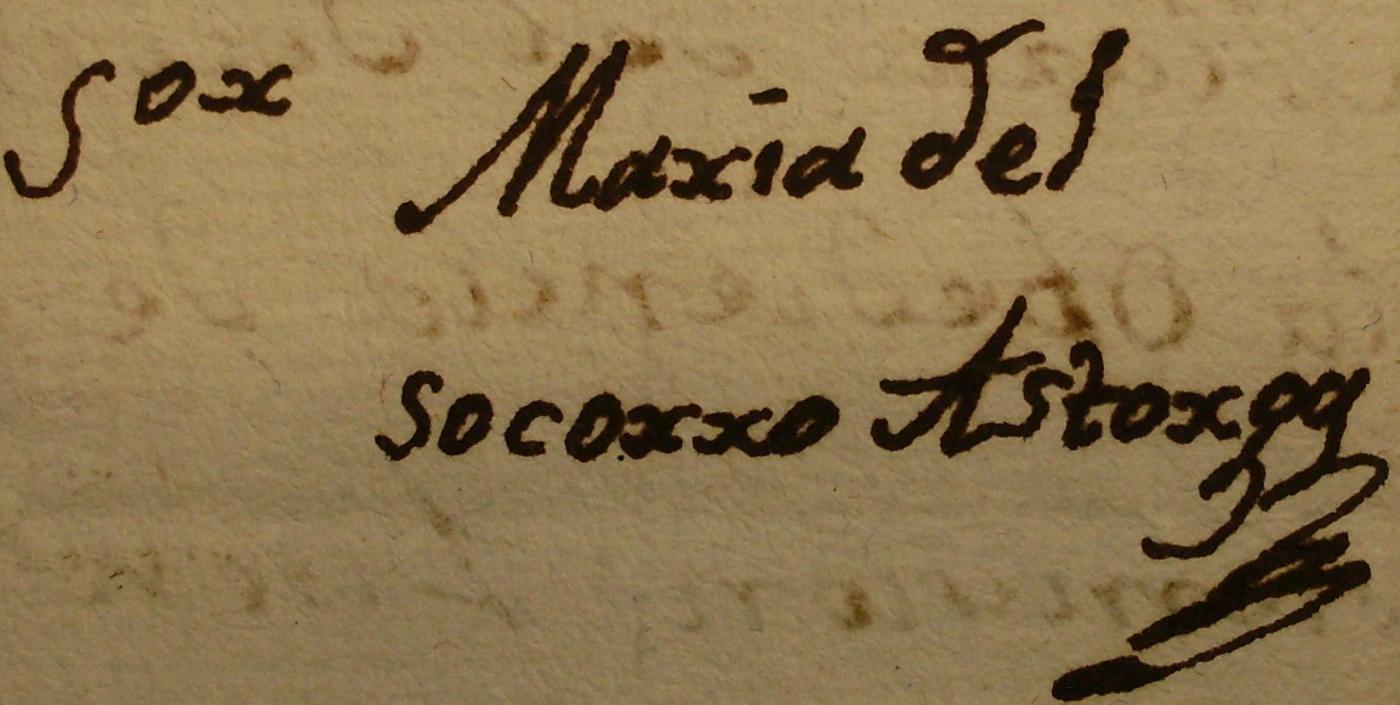 Sor Maria del
Socorro Astorga